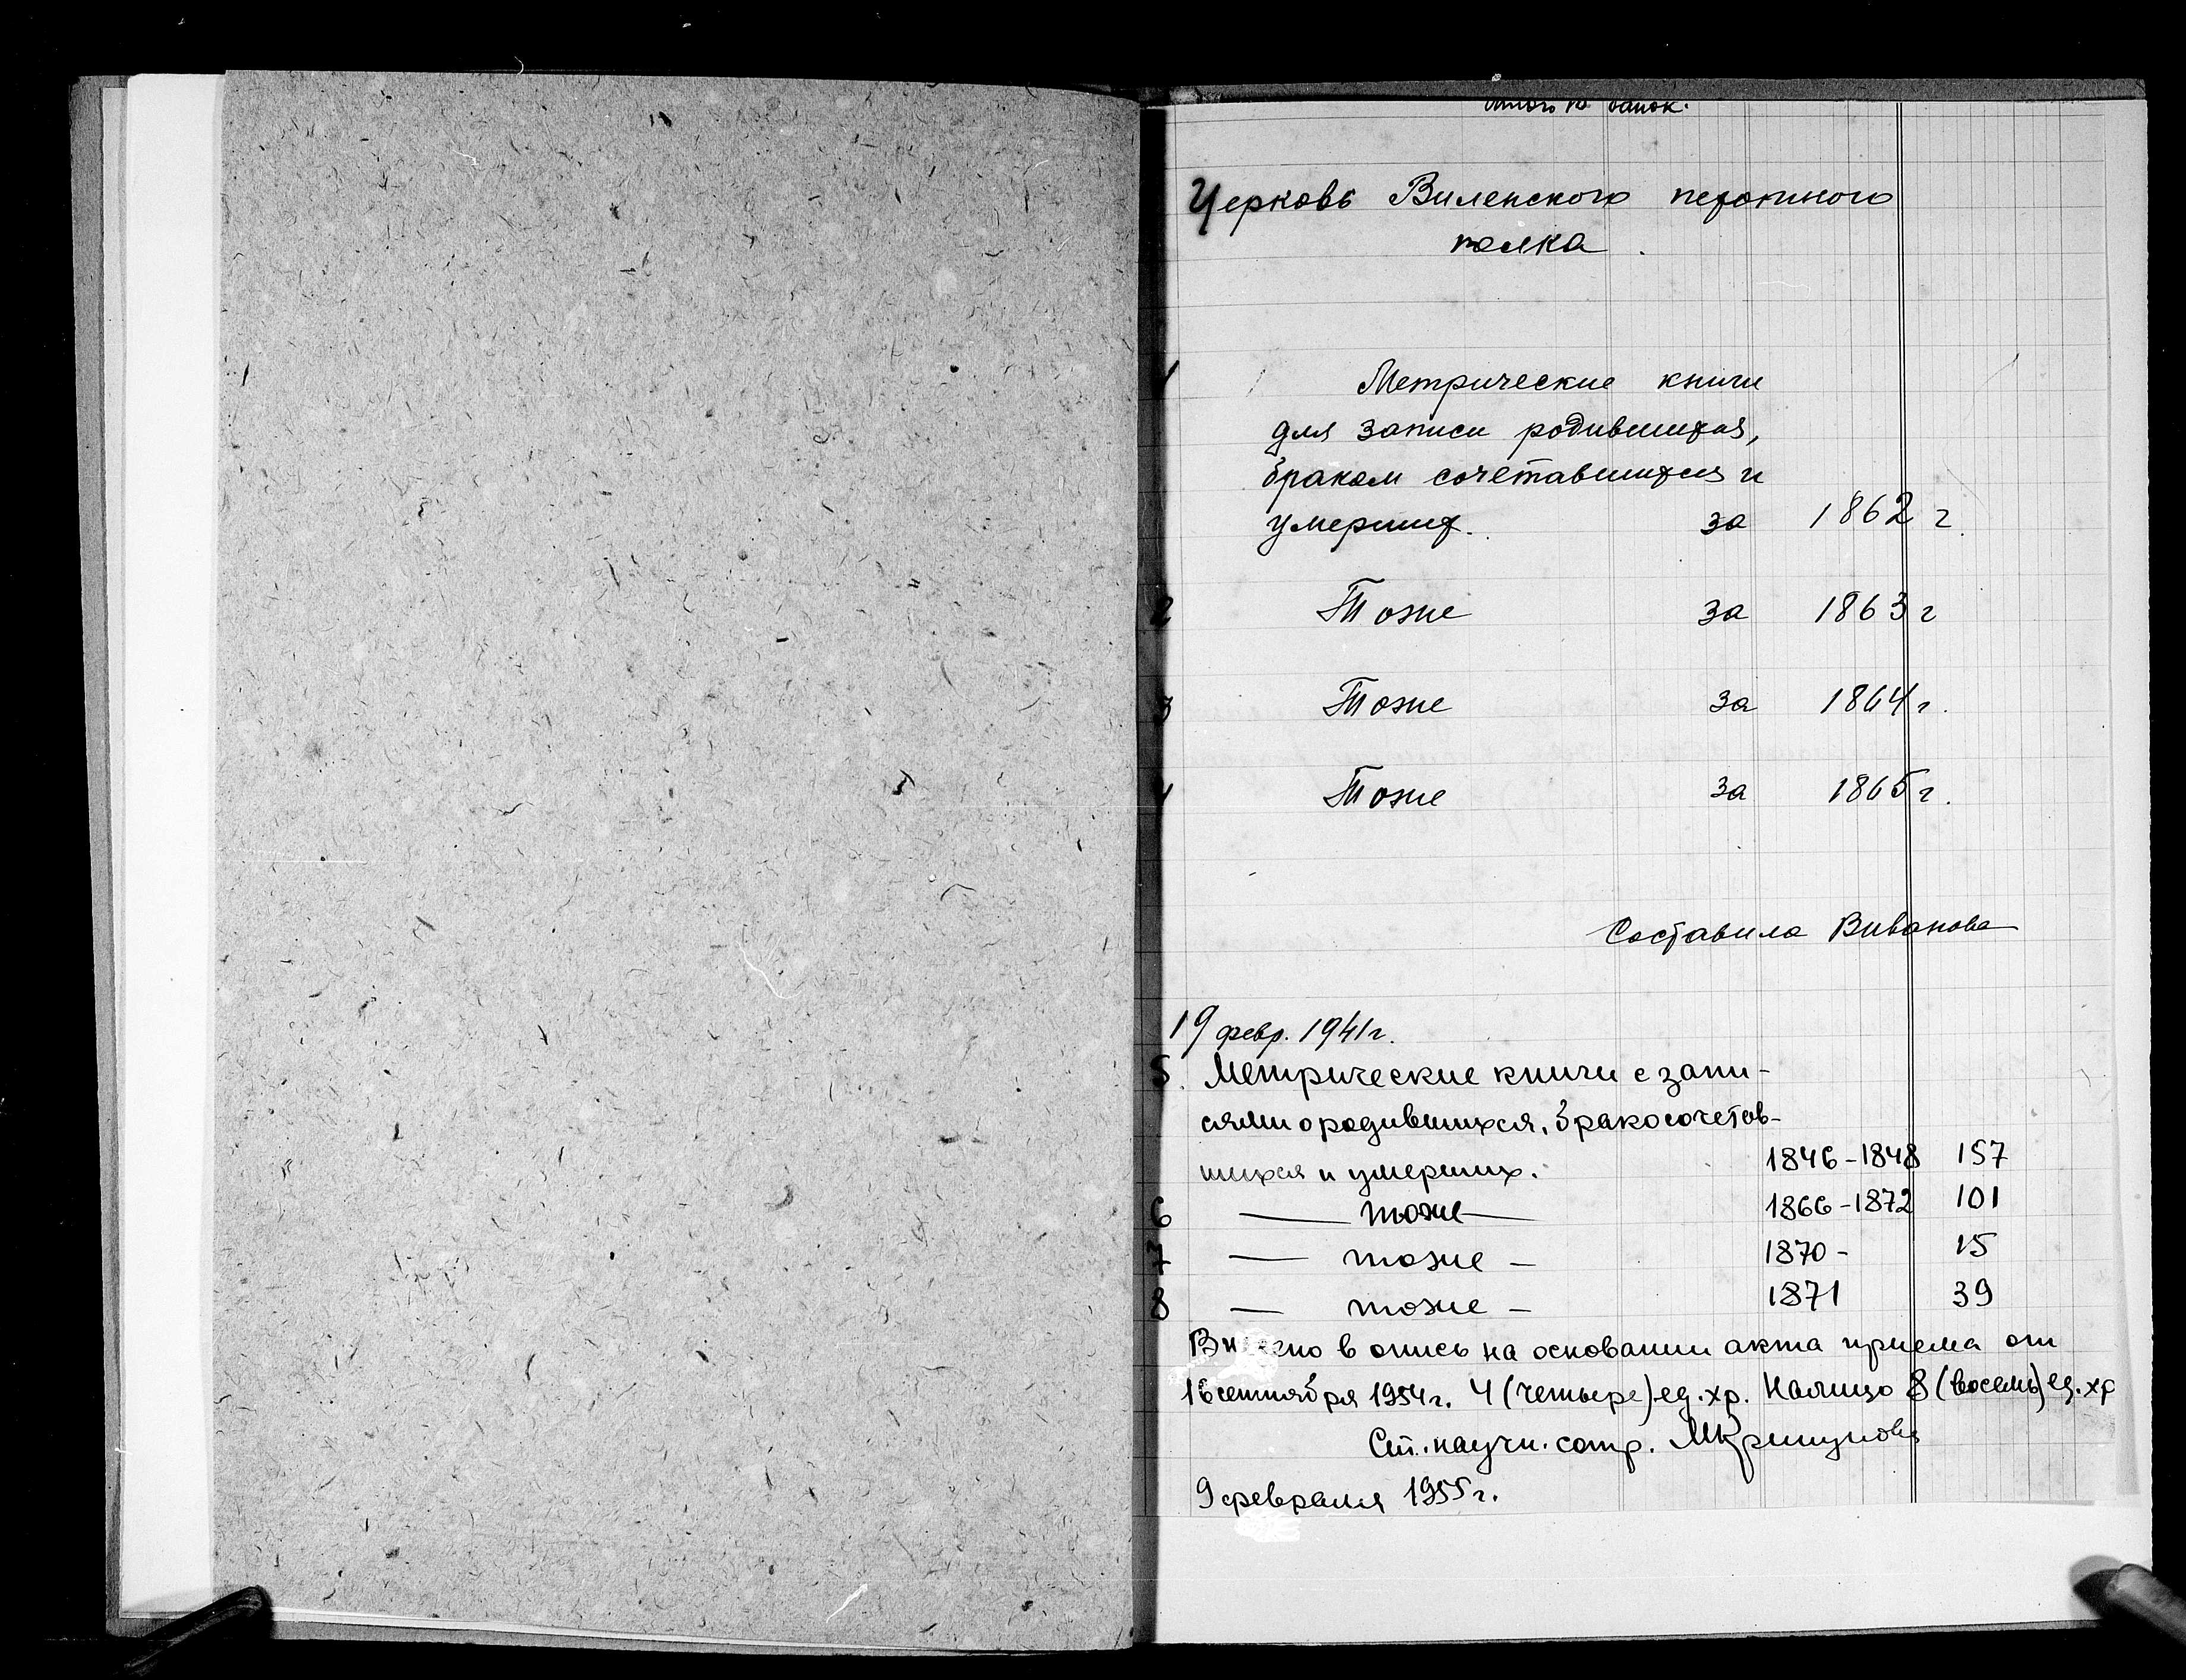 Церковь Виленского пехотного
полка.
1 Метрические книги
для записи родившихся,
браком сочетавшихся и
умерших. за 1862 г.
2 Тоже за 1863 г
3 Тоже за 1864 г.
4 Тоже за 1865 г.
Составила
19 февр. 1941 г.
5. Метрические книги с запи-
сями о родившихся, бракосочетав-
шихся и умерших. 1846-1848 157
6 — тоже — 1866-1872 101
7 — тоже — 1870- 15
8 — тоже — 1871 39
Внесено в опись на основании акта приема от
16 сентября 1954 г. 4 (четыре) ед. хр. Налицо 8 (восемь) ед. хр
Ст. научн. сотр.
9 февраля 1955 г.